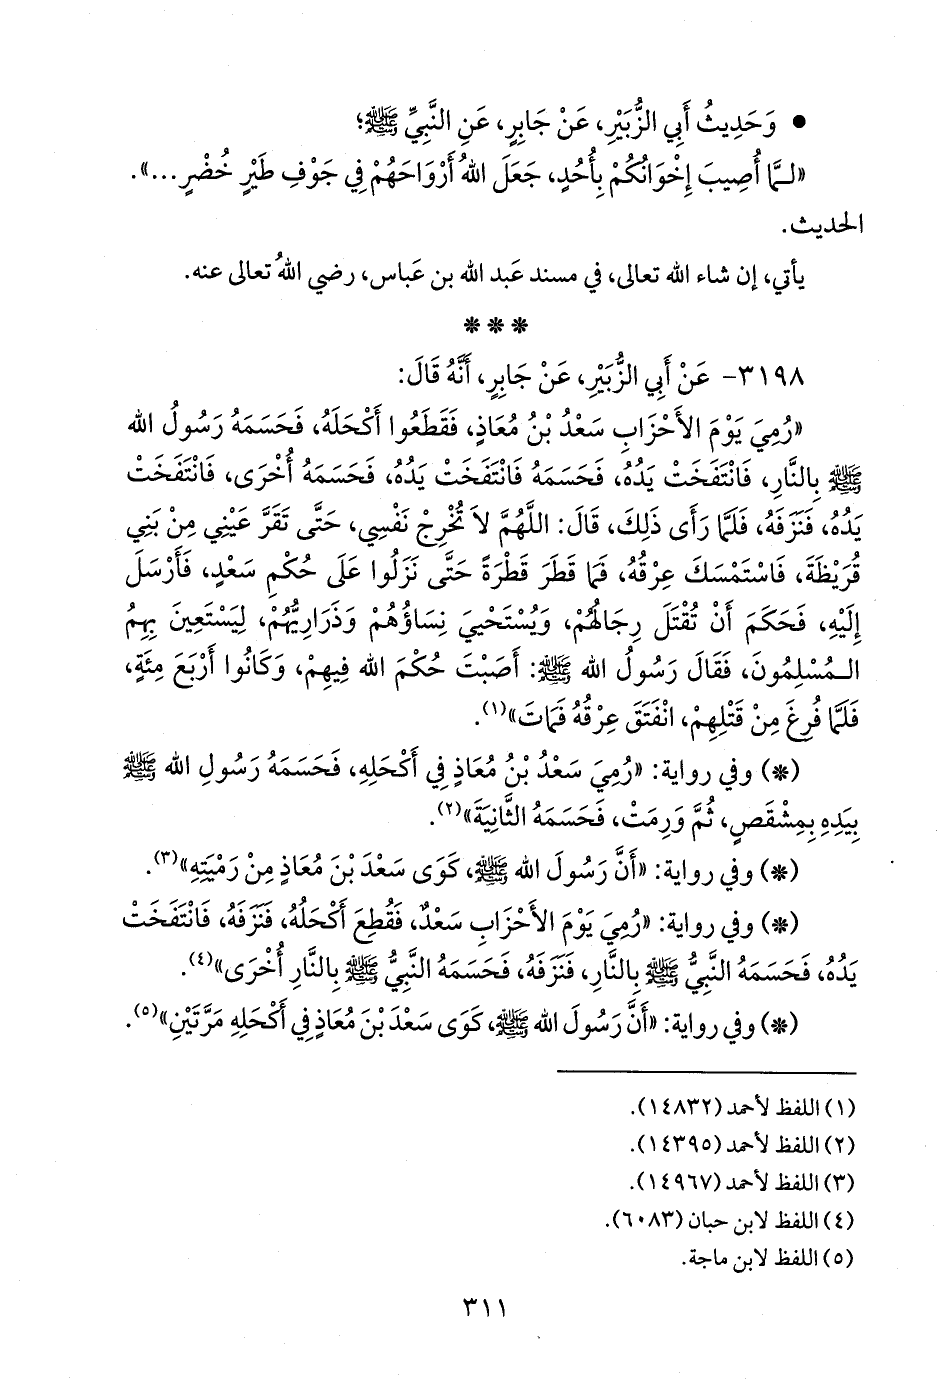 • وَحَدِيثُ أَبِي الزُّبَيْرِ، عَنْ جَابِرٍ، عَنِ النَّبِيِّ ﷺ؛
«لـمَّا أُصِيبَ إِخْوَانُكُمْ بِأُحُدٍ، جَعَلَ اللهُ أَرْوَاحَهُمْ فِي جَوْفِ طَيْرٍ خُضْرٍ...».
الحديث.
يأتي، إن شاء الله تعالى، في مسند عَبد الله بن عَباس، رضي اللهُ تعالى عنه.
***
٣١٩٨- عَنْ أَبِي الزُّبَيْرِ، عَنْ جَابِرٍ، أَنَّهُ قَالَ:
«رُمِيَ يَوْمَ الأَحْزَابِ سَعْدُ بْنُ مُعَاذٍ، فَقَطَعُوا أَكْحَلَهُ، فَحَسَمَهُ رَسُولُ الله
ﷺ بِالنَّارِ، فَانْتَفَخَتْ يَدُهُ، فَحَسَمَهُ فَانْتَفَخَتْ يَدُهُ، فَحَسَمَهُ أُخْرَى، فَانْتَفَخَتْ
يَدُهُ، فَنَزَفَهُ، فَلَمَّا رَأَى ذَلِكَ، قَالَ: اللَّهُمَّ لاَ تُخْرِجْ نَفْسِي، حَتَّى تَقَرَّ عَيْنِي مِنْ بَنِي
قُرَيْظَةَ، فَاسْتَمْسَكَ عِرْقُهُ، فَمَا قَطَرَ قَطْرَةً حَتَّى نَزَلُوا عَلَى حُكْمِ سَعْدٍ، فَأَرْسَلَ
إِلَيْهِ، فَحَكَمَ أَنْ تُقْتَلَ رِجَالُهُمْ، وَيُسْتَحْيِيَ نِسَاؤُهُمْ وَذَرَارِيُّهُمْ، لِيَسْتَعِينَ بِهِمُ
الـمُسْلِمُونَ، فَقَالَ رَسُولُ الله ﷺ: أَصَبْتَ حُكْمَ الله فِيهِمْ، وَكَانُوا أَرْبَعَ مِئَةٍ،
فَلَمَّا فُرِغَ مِنْ قَتْلِهِمْ، انْفَتَقَ عِرْقُهُ فَمَاتَ»(١).
(*) وفي رواية: «رُمِيَ سَعْدُ بْنُ مُعَاذٍ فِي أَكْحَلِهِ، فَحَسَمَهُ رَسُولِ الله ﷺ
بِيَدِهِ بِمِشْقَصٍ، ثُمَّ وَرِمَتْ، فَحَسَمَهُ الثَّانِيَةَ»(٢).
(*) وفي رواية: «أَنَّ رَسُولَ الله ﷺ، كَوَى سَعْدَ بْنَ مُعَاذٍ مِنْ رَمْيَتِهِ»(٣).
(*) وفي رواية: «رُمِيَ يَوْمَ الأَحْزَابِ سَعْدٌ، فَقُطِعَ أَكْحَلُهُ، فَنَزَفَهُ، فَانْتَفَخَتْ
يَدُهُ، فَحَسَمَهُ النَّبِيُّ ﷺ بِالنَّارِ، فَنَزَفَهُ، فَحَسَمَهُ النَّبِيُّ ﷺ بِالنَّارِ أُخْرَى»(٤).
(*) وفي رواية: «أَنَّ رَسُولَ الله ﷺ، كَوَى سَعْدَ بْنَ مُعَاذٍ فِي أَكْحَلِهِ مَرَّتَيْنِ»(٥).
(١) اللفظ لأحمد (١٤٨٣٢).
(٢) اللفظ لأحمد (١٤٣٩٥).
(٣) اللفظ لأحمد (١٤٩٦٧).
(٤) اللفظ لابن حبان (٦٠٨٣).
(٥) اللفظ لابن ماجة.
٣١١